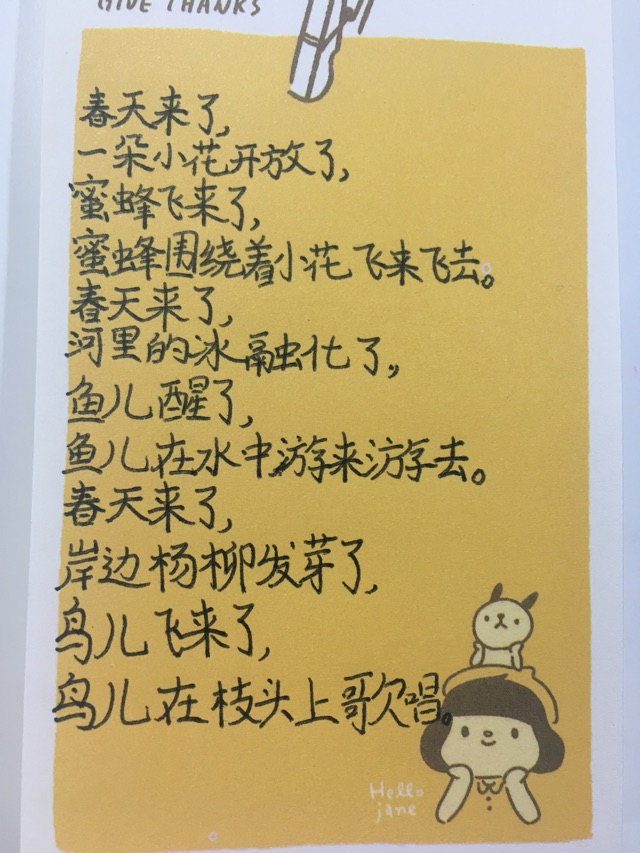 GIVE THANKS
春天来了,
一朵小花开放了,
蜜蜂飞来了,
蜜蜂围绕着小花飞来飞去。
春天来了,
河里的冰融化了,
鱼儿醒了,
鱼儿在水中游来游去。
春天来了,
岸边杨柳发芽了,
鸟儿飞来了,
鸟儿在枝头上歌唱。
Hello
jane